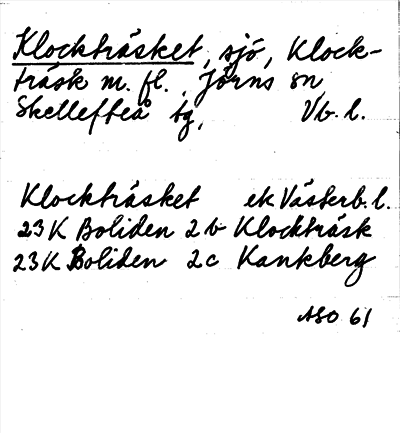 Klockträsket, sjö, Klock-
träsk m. fl., Jörns sn,
Skellefteå tg, Vb. l.
Klockträsket ek Västerb. l.
23K Boliden 2b Klockträsk
23K Boliden 2c Kankberg
ASO 61